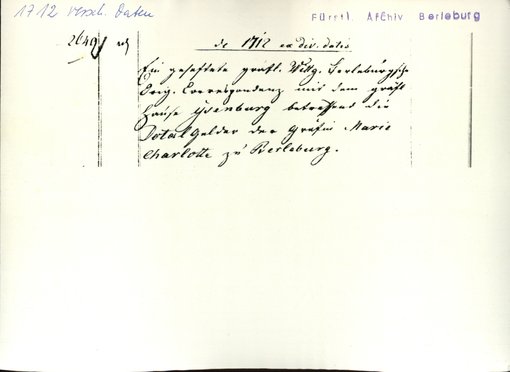 1712 versch. Daten
Fürstl. Archiv Berleburg
2649
de 1712 ex div. datis
Ein geheftete gräfl. Wittg. Berleburgsche
Orig. Correspondenz mit dem gräfl.
Hause Ysenburg betreffend die
Dotal Gelder der Gräfin Marie
Charlotte zu Berleburg.